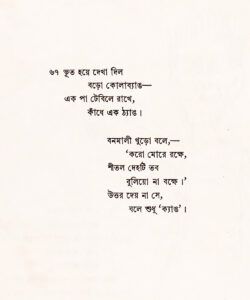 ৬৭ ভূত হয়ে দেখা দিল
বড়ো কোলাব্যাঙ—
এক পা টেবিলে রাখে,
কাঁধে এক ঠ্যাঙ।
বনমালী খুড়ো বলে,—
‘করো মোরে রক্ষে,
শীতল দেহটি তব
বুলিয়ো না বক্ষে।’
উত্তর দেয় না সে,
বলে শুধু ‘ক্যাঙ’।